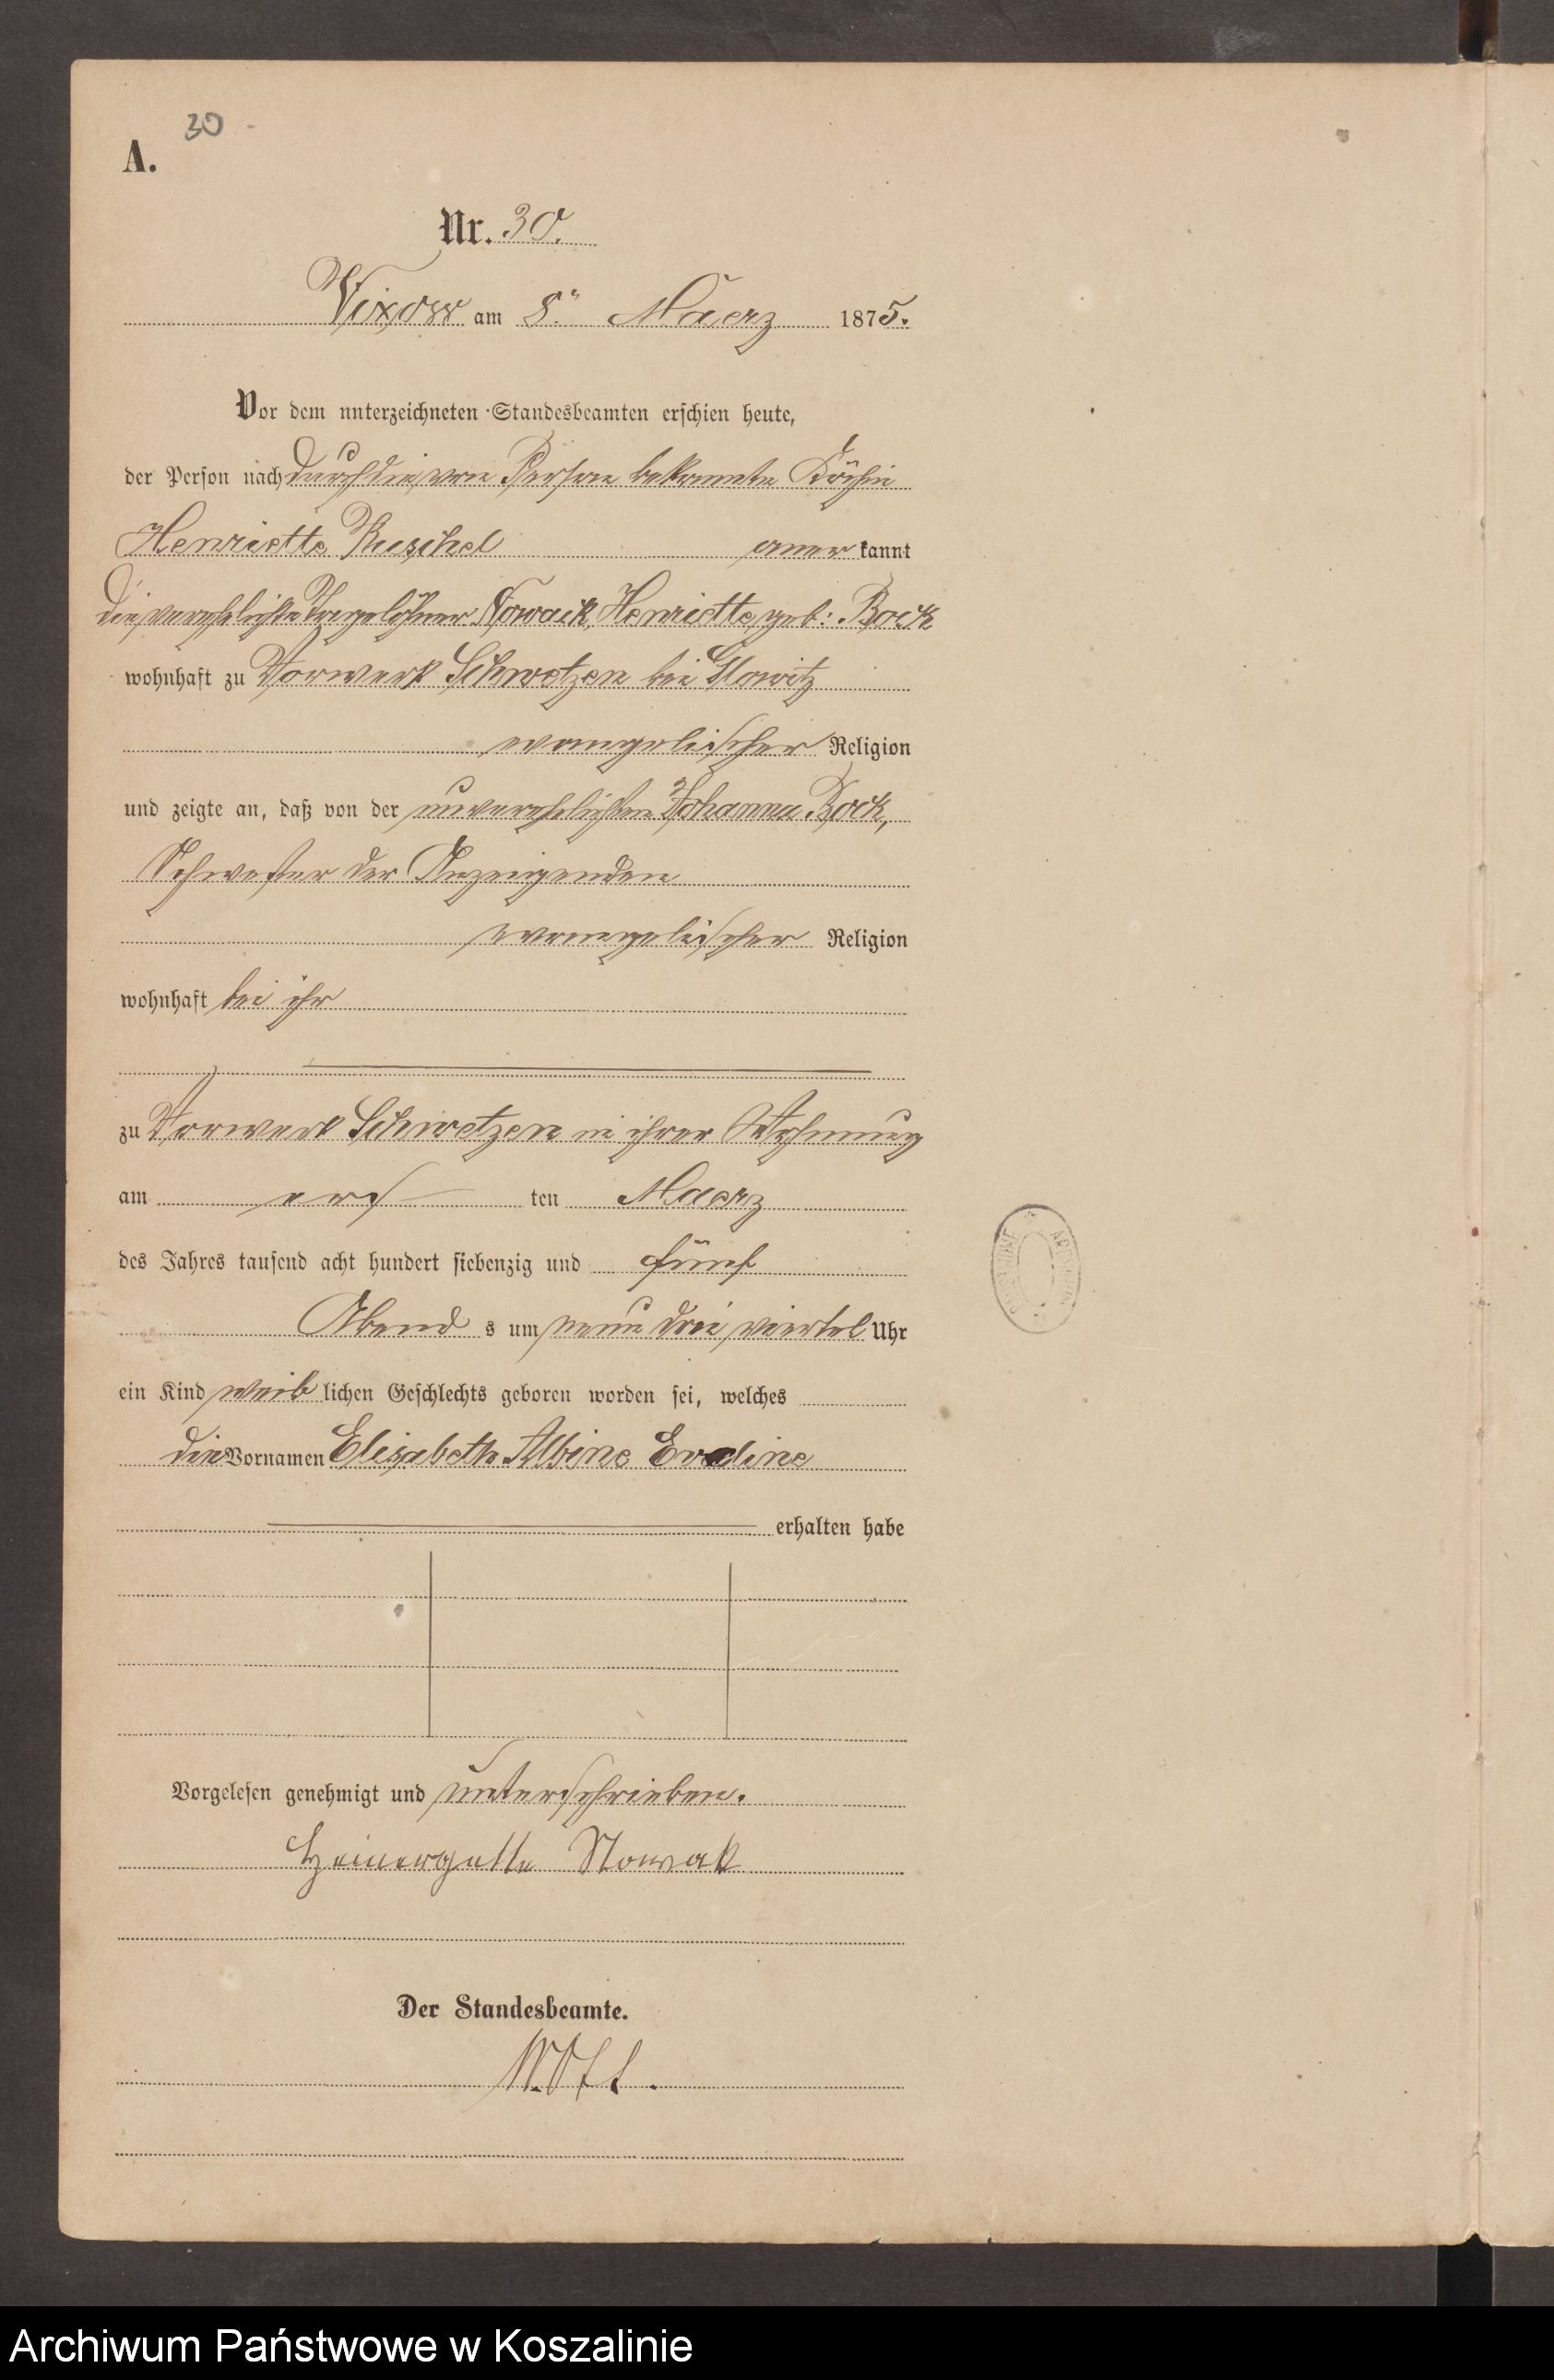 30
A.
Nr. 30.
Vixow am 8ten Maerz 1875.
Vor dem unterzeichneten Standesbeamten erschien heute,
der Person nach durch die von Person bekannte Köchin
Henriette Ruschel aner kannt
die verehelichte Tagelöhner Nowack, Henriette, geb: Bock
wohnhaft zu Vorwerk Schwetzen bei Glowitz
evangelischer Religion
und zeigte an, daß von der unverehelichten Johanna Bock,
Schwester der Anzeigenden
evangelischer Religion
wohnhaft bei ihr
zu Vorwerk Schwetzen in ihrer Wohnung
am ers ten Maerz
des Jahres tausend acht hundert siebenzig und fünf
Abend s um neun drei viertel Uhr
ein Kind weib lichen Geschlechts geboren worden sei, welches
die Vornamen Elisabeth Albine Evaline
erhalten habe
Vorgelesen genehmigt und unterschrieben.
Nowak
Der Standesbeamte.
Archiwum Państwowe w Koszalinie